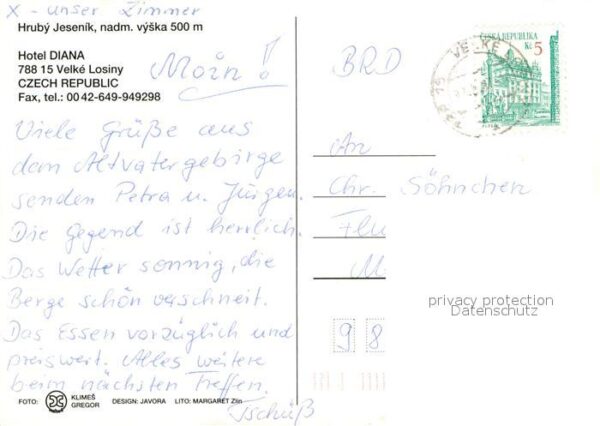 X - unser Zimmer
Hrubý Jeseník, nadm. výška 500 m
Hotel DIANA
788 15 Velké Losiny
CZECH REPUBLIC
Fax, tel.: 00 42-649-949298
Moin!
Viele Grüße aus
dem Altvatergebirge
senden Petra u. Jürgen.
Die Gegend ist herrlich.
Das Wetter sonnig, die
Berge schön verschneit.
Das Essen vorzüglich und
preiswert. Alles weitere
beim nächsten Treffen.
Tschüß
FOTO: KLIMEŠ GREGOR DESIGN: JAVORA LITO: MARGARET Zlín
BRD
ČESKÁ REPUBLIKA
Kč 5
PLZEŇ
VELKÉ
An
Chr. Söhnchen
Flu
M
98
privacy protection
Datenschutz